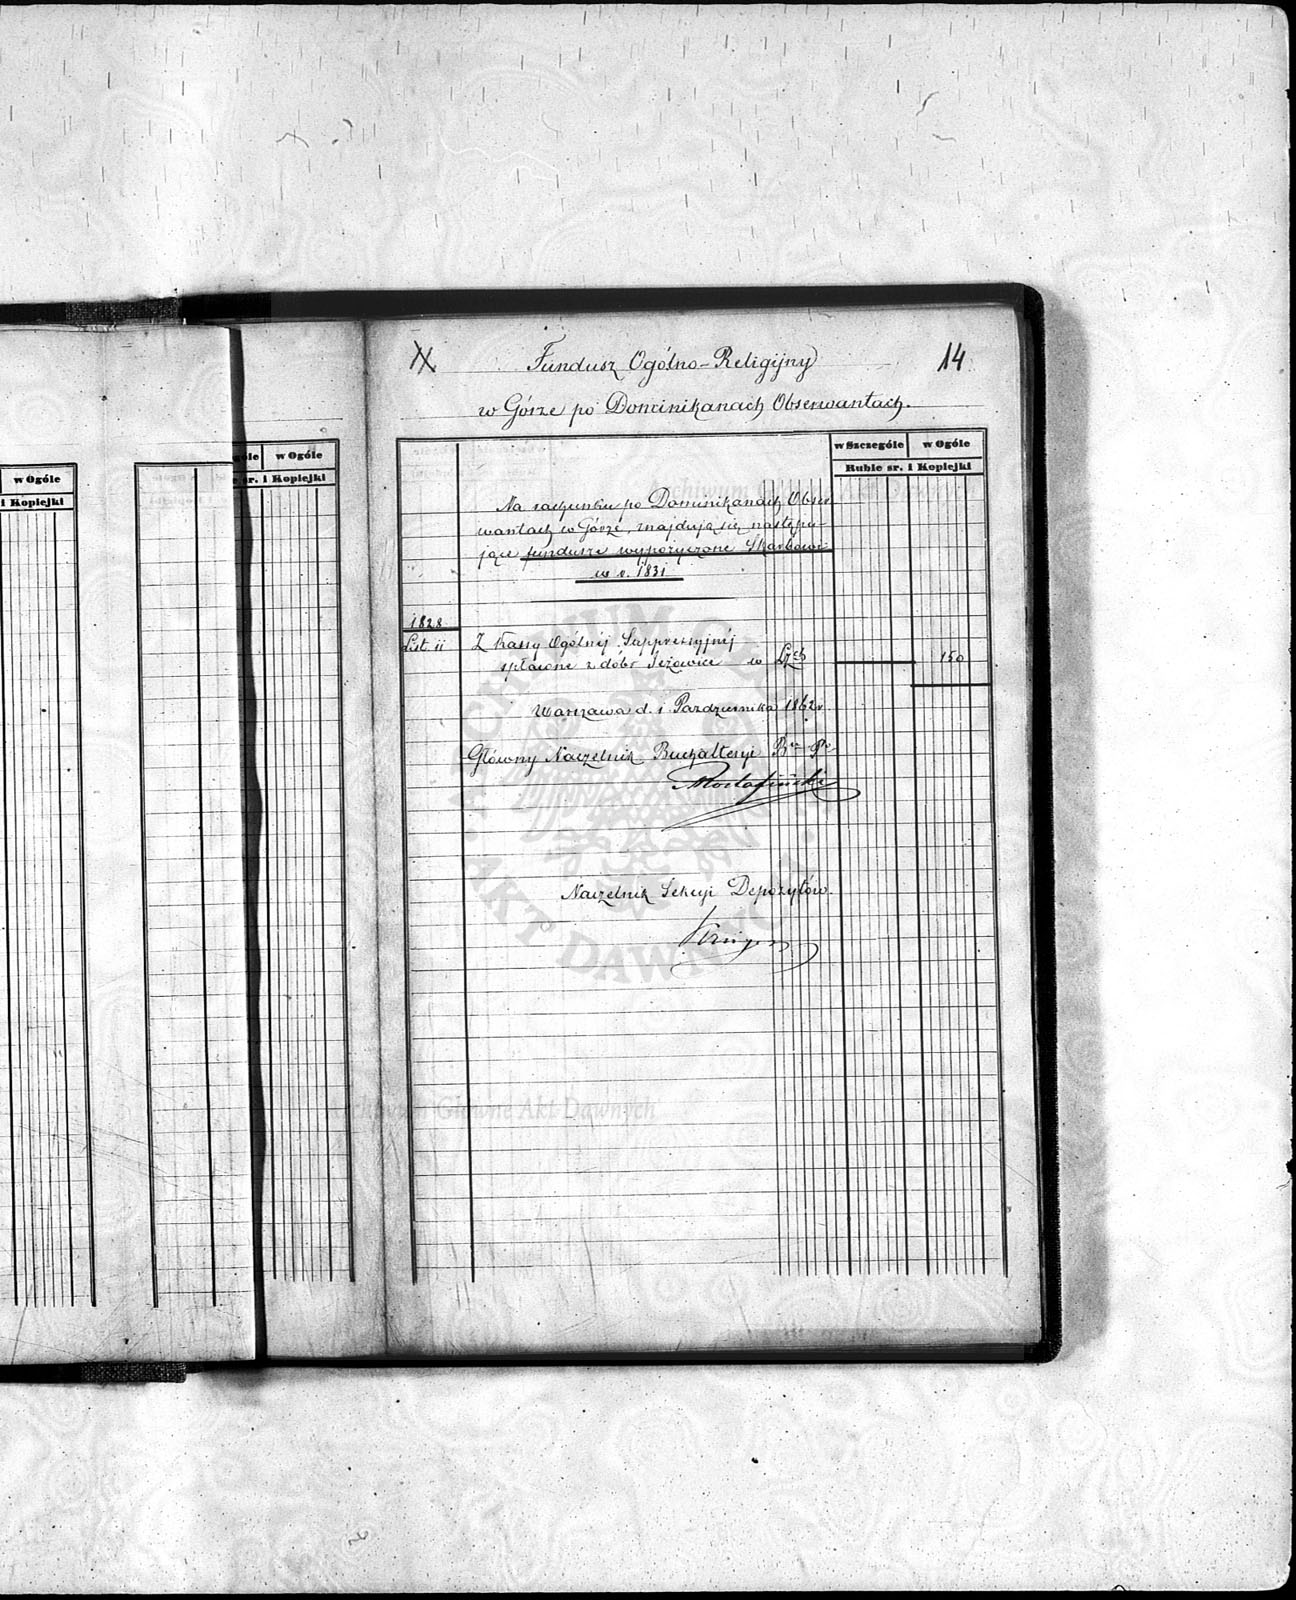 Fundusz Ogólno-Religijny
14
w Górze po Dominikanach Obserwantach.
w Szczególe w Ogóle
Ruble sr. i Kopiejki
w Ogóle
i Kopiejki
gole w Ogóle
sr. i Kopiejki
Na rachunku po Dominikanach Obser
wantach w Górze, znajdują się następu-
jące fundusze wypożyczone Skarbowi
w r. 1831
1828
List. 11
Z Kassy Ogólnej Suppressyjnéj
spłacone z dóbr Jeżowice w
150
Warszawa d. 1 Października 1862 r.
Główny Naczelnik Buchalteryi
Naczelnik Sekcyi Depozytów.
ARCHIWUM GŁÓWNE AKT DAWNYCH
Archiwum Główne Akt Dawnych